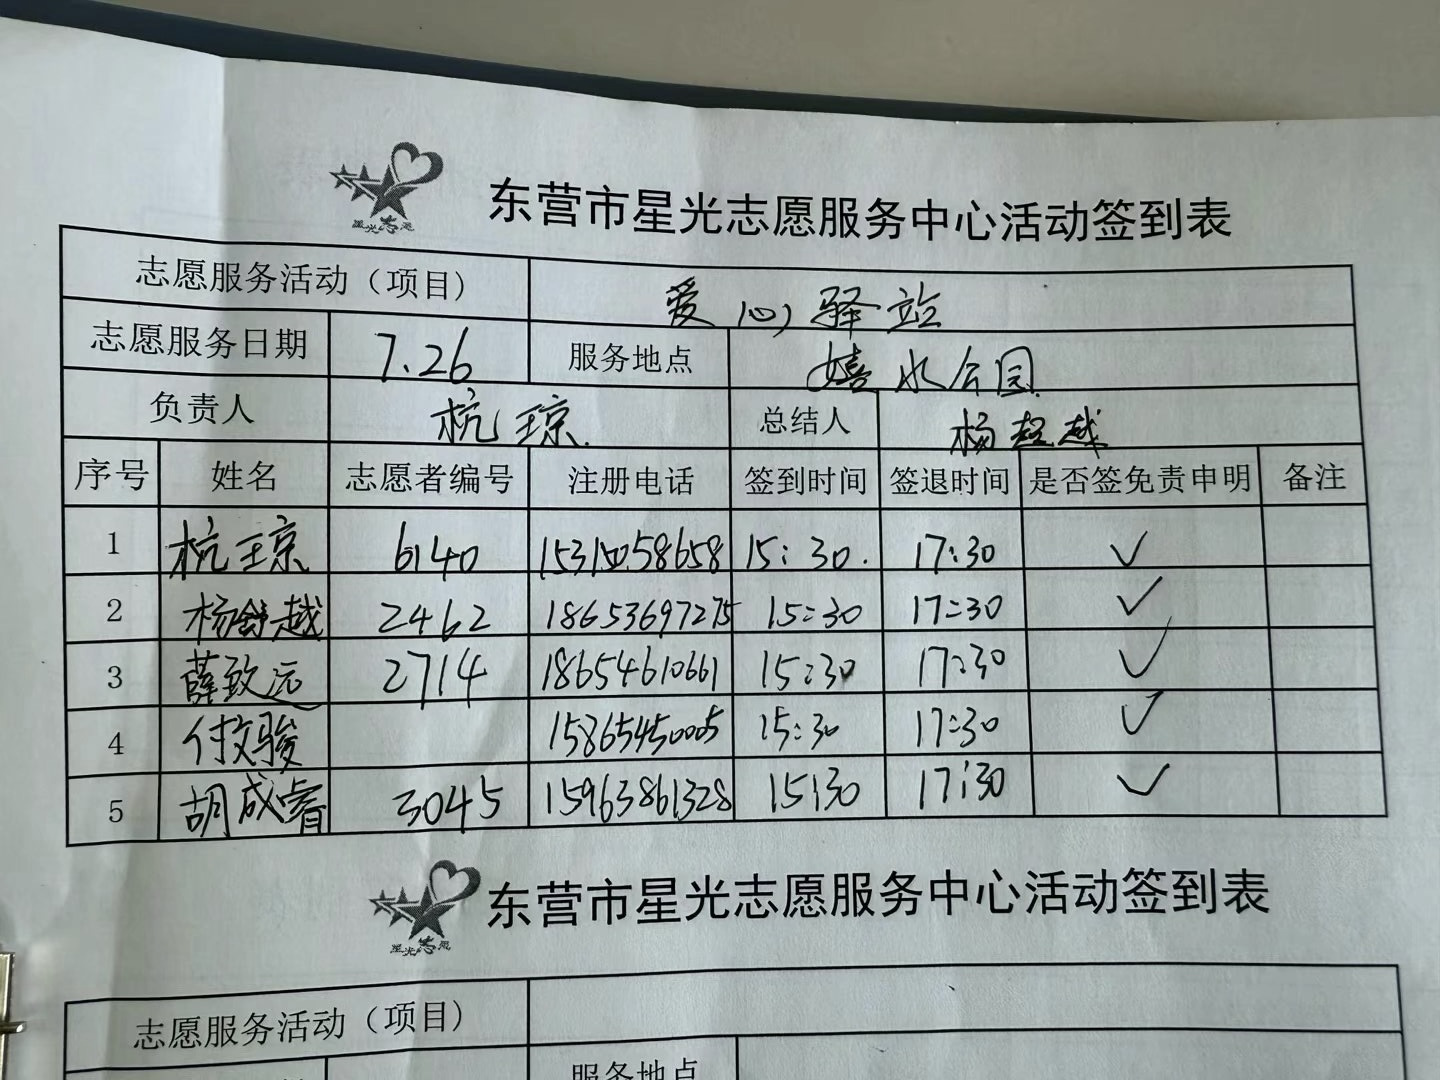 星光志愿
东营市星光志愿服务中心活动签到表
志愿服务活动（项目） 爱心驿站
志愿服务日期 7.26 服务地点 嬉水公园
负责人 杭琼 总结人 杨超越
序号 姓名 志愿者编号 注册电话 签到时间 签退时间 是否签免责申明 备注
1 杭琼 6140 15:30. 17:30 ✓
2 2462 18653697275 15:30 17:30 ✓
3 薛致远 2714 18654610661 15:30 17:30 ✓
4 付文骏 15865450005 15:30 17:30 ✓
5 胡成睿 3045 15963861328 15:30 17:30 ✓
星光志愿
东营市星光志愿服务中心活动签到表
志愿服务活动（项目）
服务地点